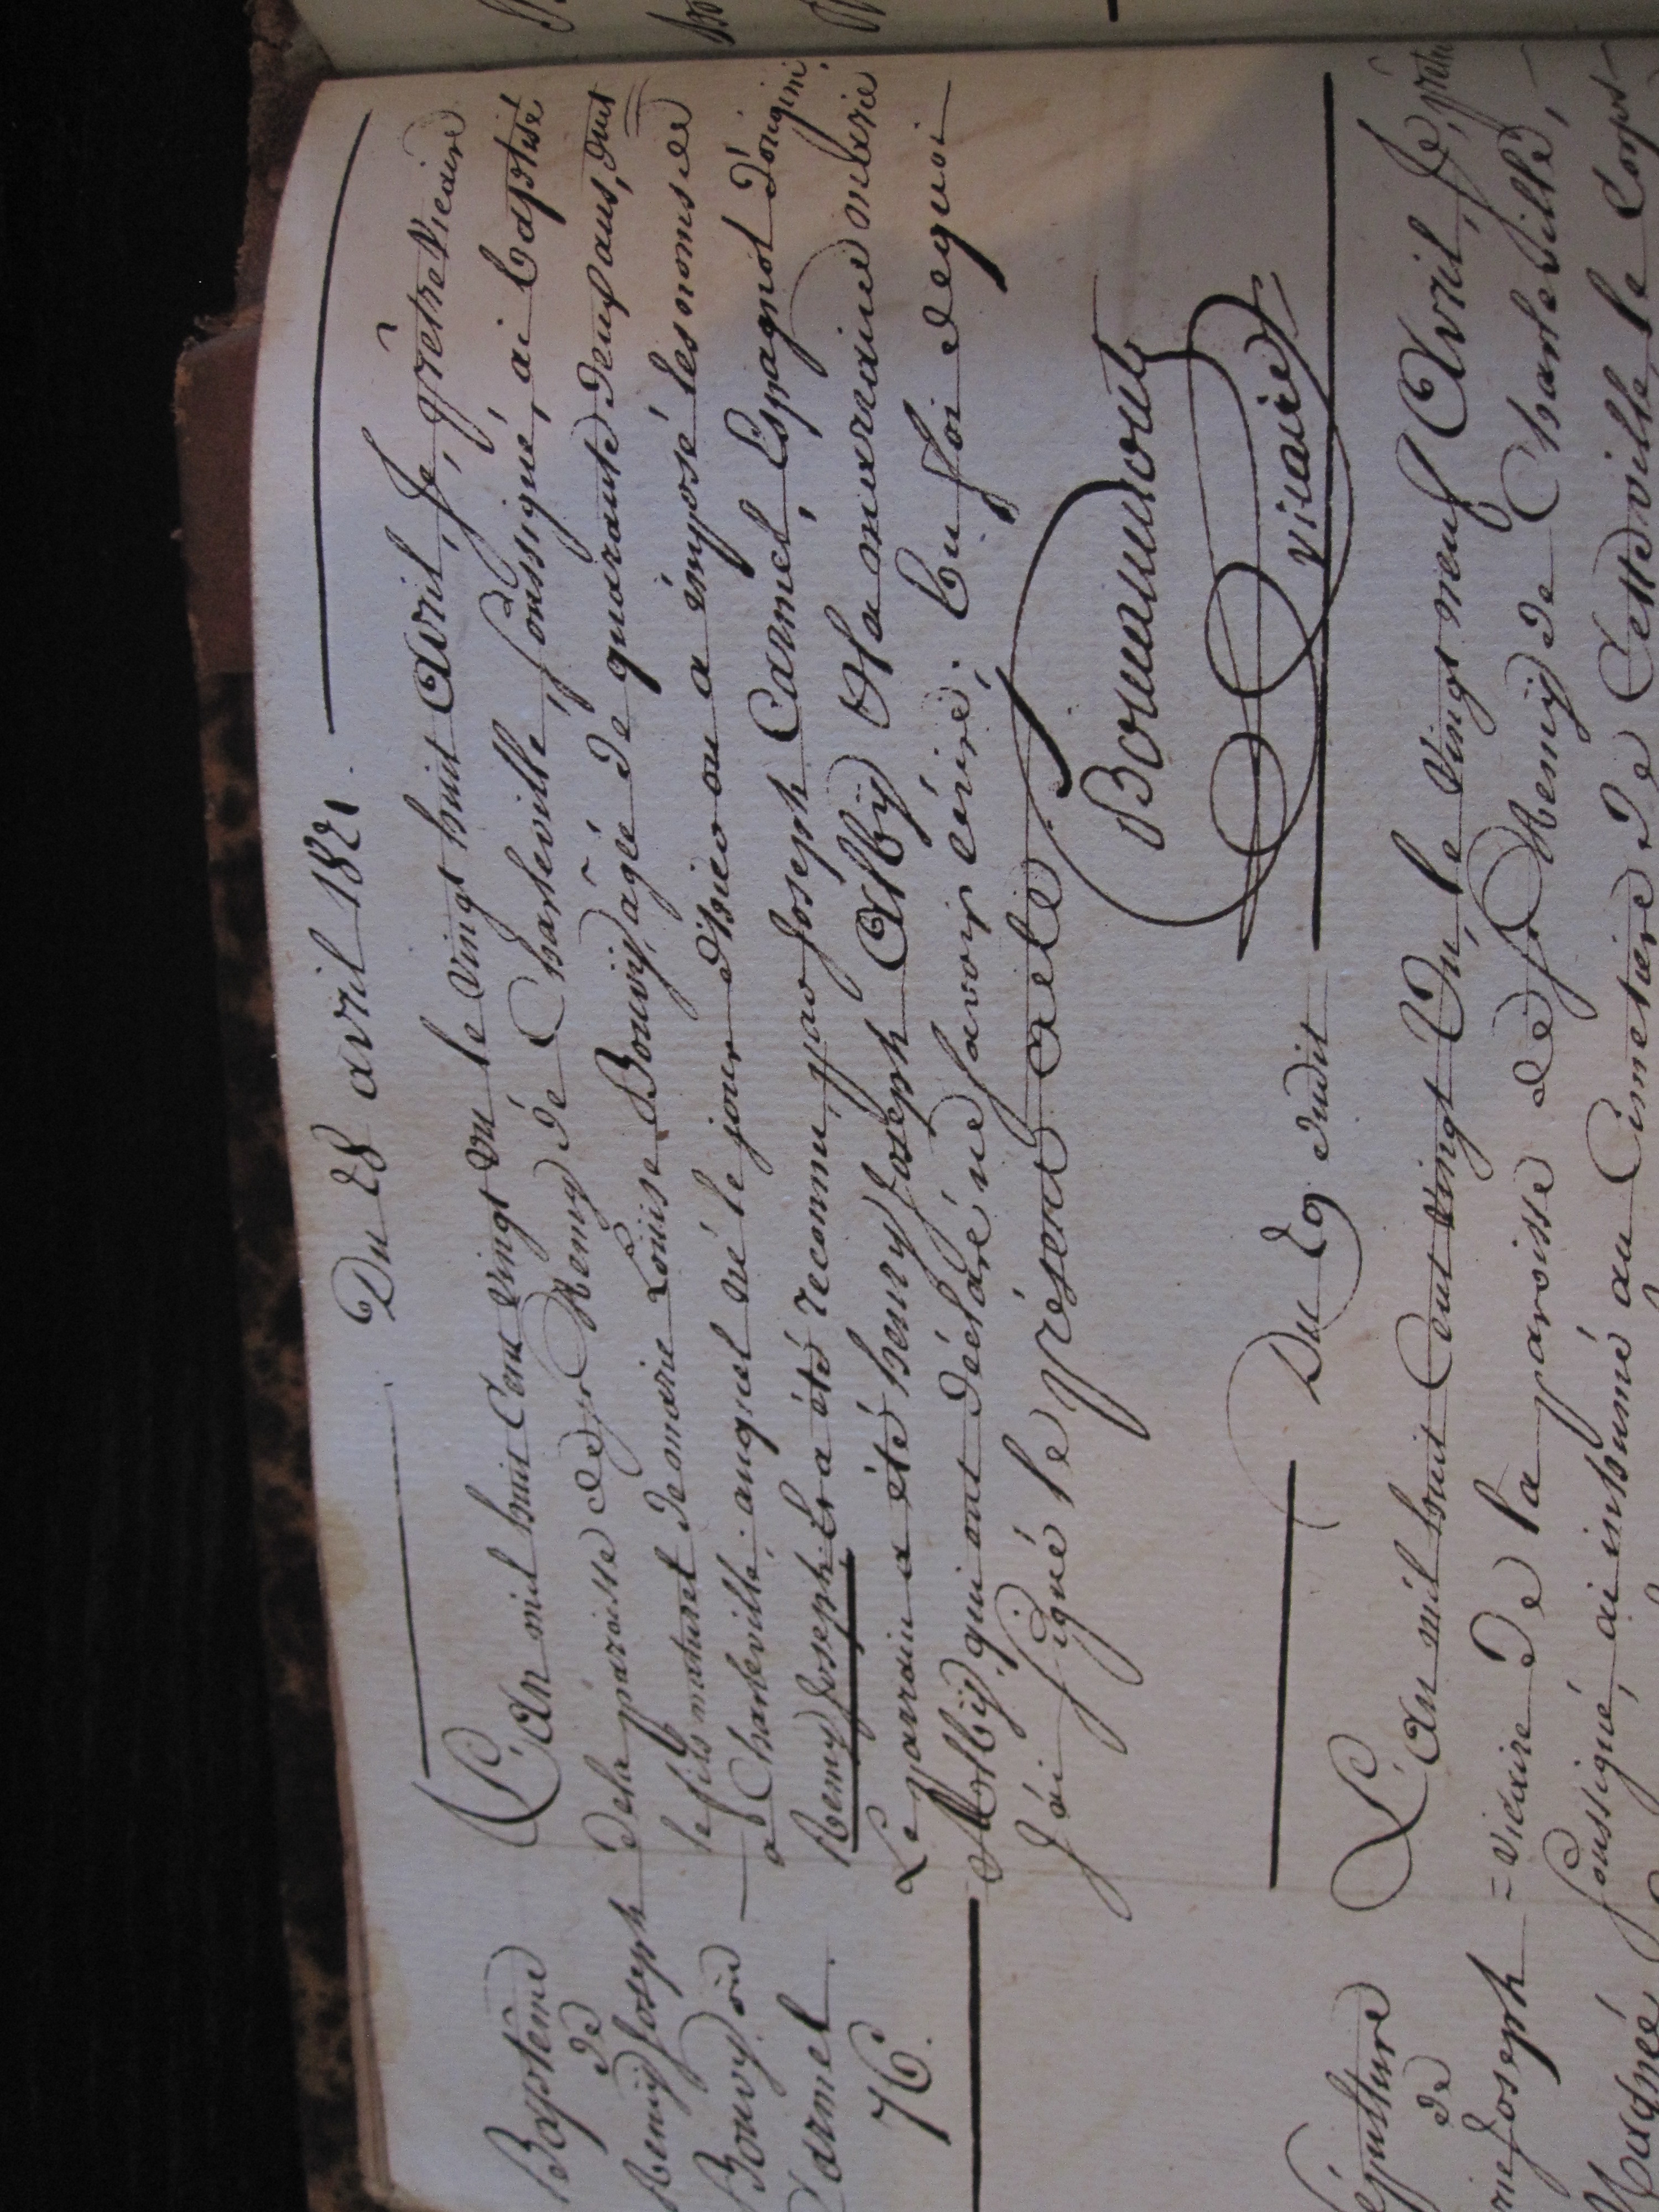 Du 28 avril 1821.
Baptême
de
Remy Joseph
Bouvy ou
Carmel
76.
L'an mil huit Cent vingt un le vingt huit Avril, Je, prêtre Vicaire
de la paroisse de St Remy de Charleville, soussigné, ai baptisé
le fils naturel de marie Louise Bouvy, agée de quarante deux ans,
à Charleville, auquel né le jour d'hier on a imposé les noms de
Remy Joseph. Et a été reconnu par Joseph Carmel, Espagnol d'origine,
Le parrain a été henry Joseph Albÿ Et la marraine marie
Albÿ, qui ont déclaré ne savoir écrire. En foi de quoi
J'ai signé le présent acte.
vicaire
Du 29 dudit
Sépulture
de
Joseph
L'an mil huit Cent vingt Un, le vingt neuf Avril, Je, prêtre
= vicaire de la paroisse de St Remÿ de Charleville,
soussigné, ai inhumé au Cimetiere de Cette ville, le Corps